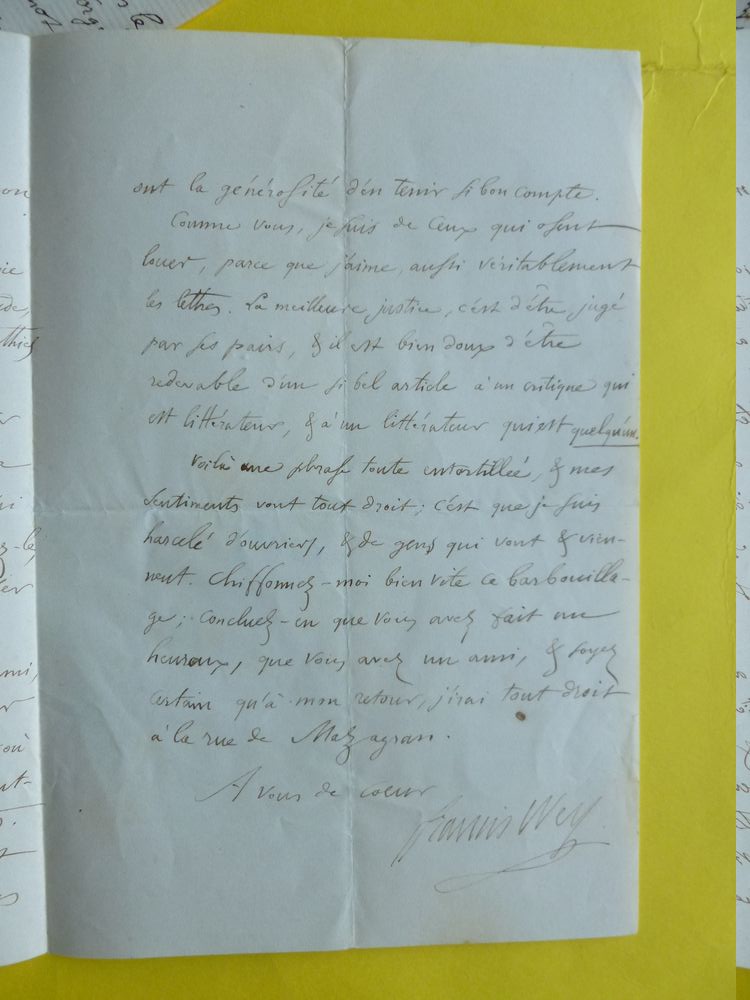 ont la générosité d'en tenir si bon compte.
Comme vous, je suis de ceux qui osent
louer, parce que j'aime aussi véritablement
les lettres. La meilleure justice, c'est d'être jugé
par ses pairs, & il est bien doux d'être
redevable d'un si bel article à un critique qui
est littérateur, & à un littérateur qui est quelqu'un.
Voilà une phrase toute entortillée, & mes
sentiments vont tout droit; c'est que je suis
harcelé d'ouvriers, & de gens qui vont & vien-
nent. Chiffonnez-moi bien vite ce barbouilla-
ge; concluez-en que vous avez fait un
heureux, que vous avez un ami, & soyez
certain qu'à mon retour, j'irai tout droit
à la rue de Mazagran.
A vous de coeur
Francis Wey